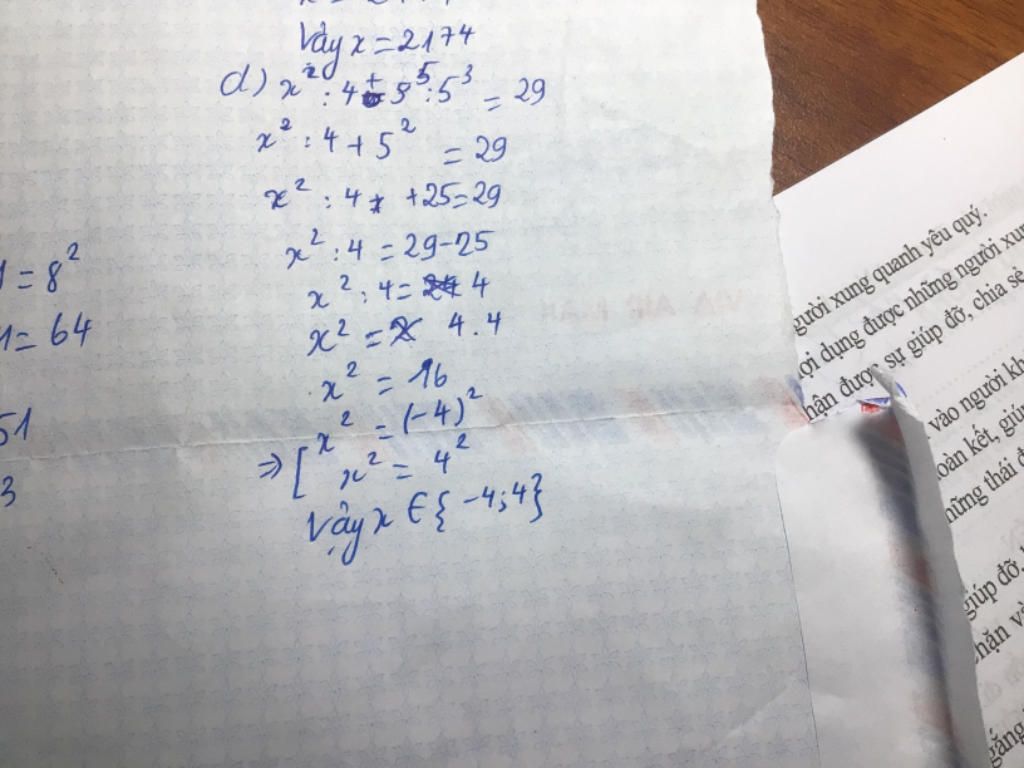 Vậy x = 2174
d) x² : 4 + 5⁵ : 5³ = 29
x² : 4 + 5² = 29
x² : 4 + 25 = 29
x² : 4 = 29 - 25
x² : 4 = 4
x² = 4 . 4
x² = 16
x² = (-4)²
⇒ [ x² = 4²
Vậy x ∈ {-4; 4}
1 = 8²
1 = 64
51
3
gười xung quanh yêu quý.
ợi dụng được những người xun
hận được sự giúp đỡ, chia sẻ
vào người kh
oàn kết, giúp
hững thái đ
giúp đỡ,
hặn và
gắng